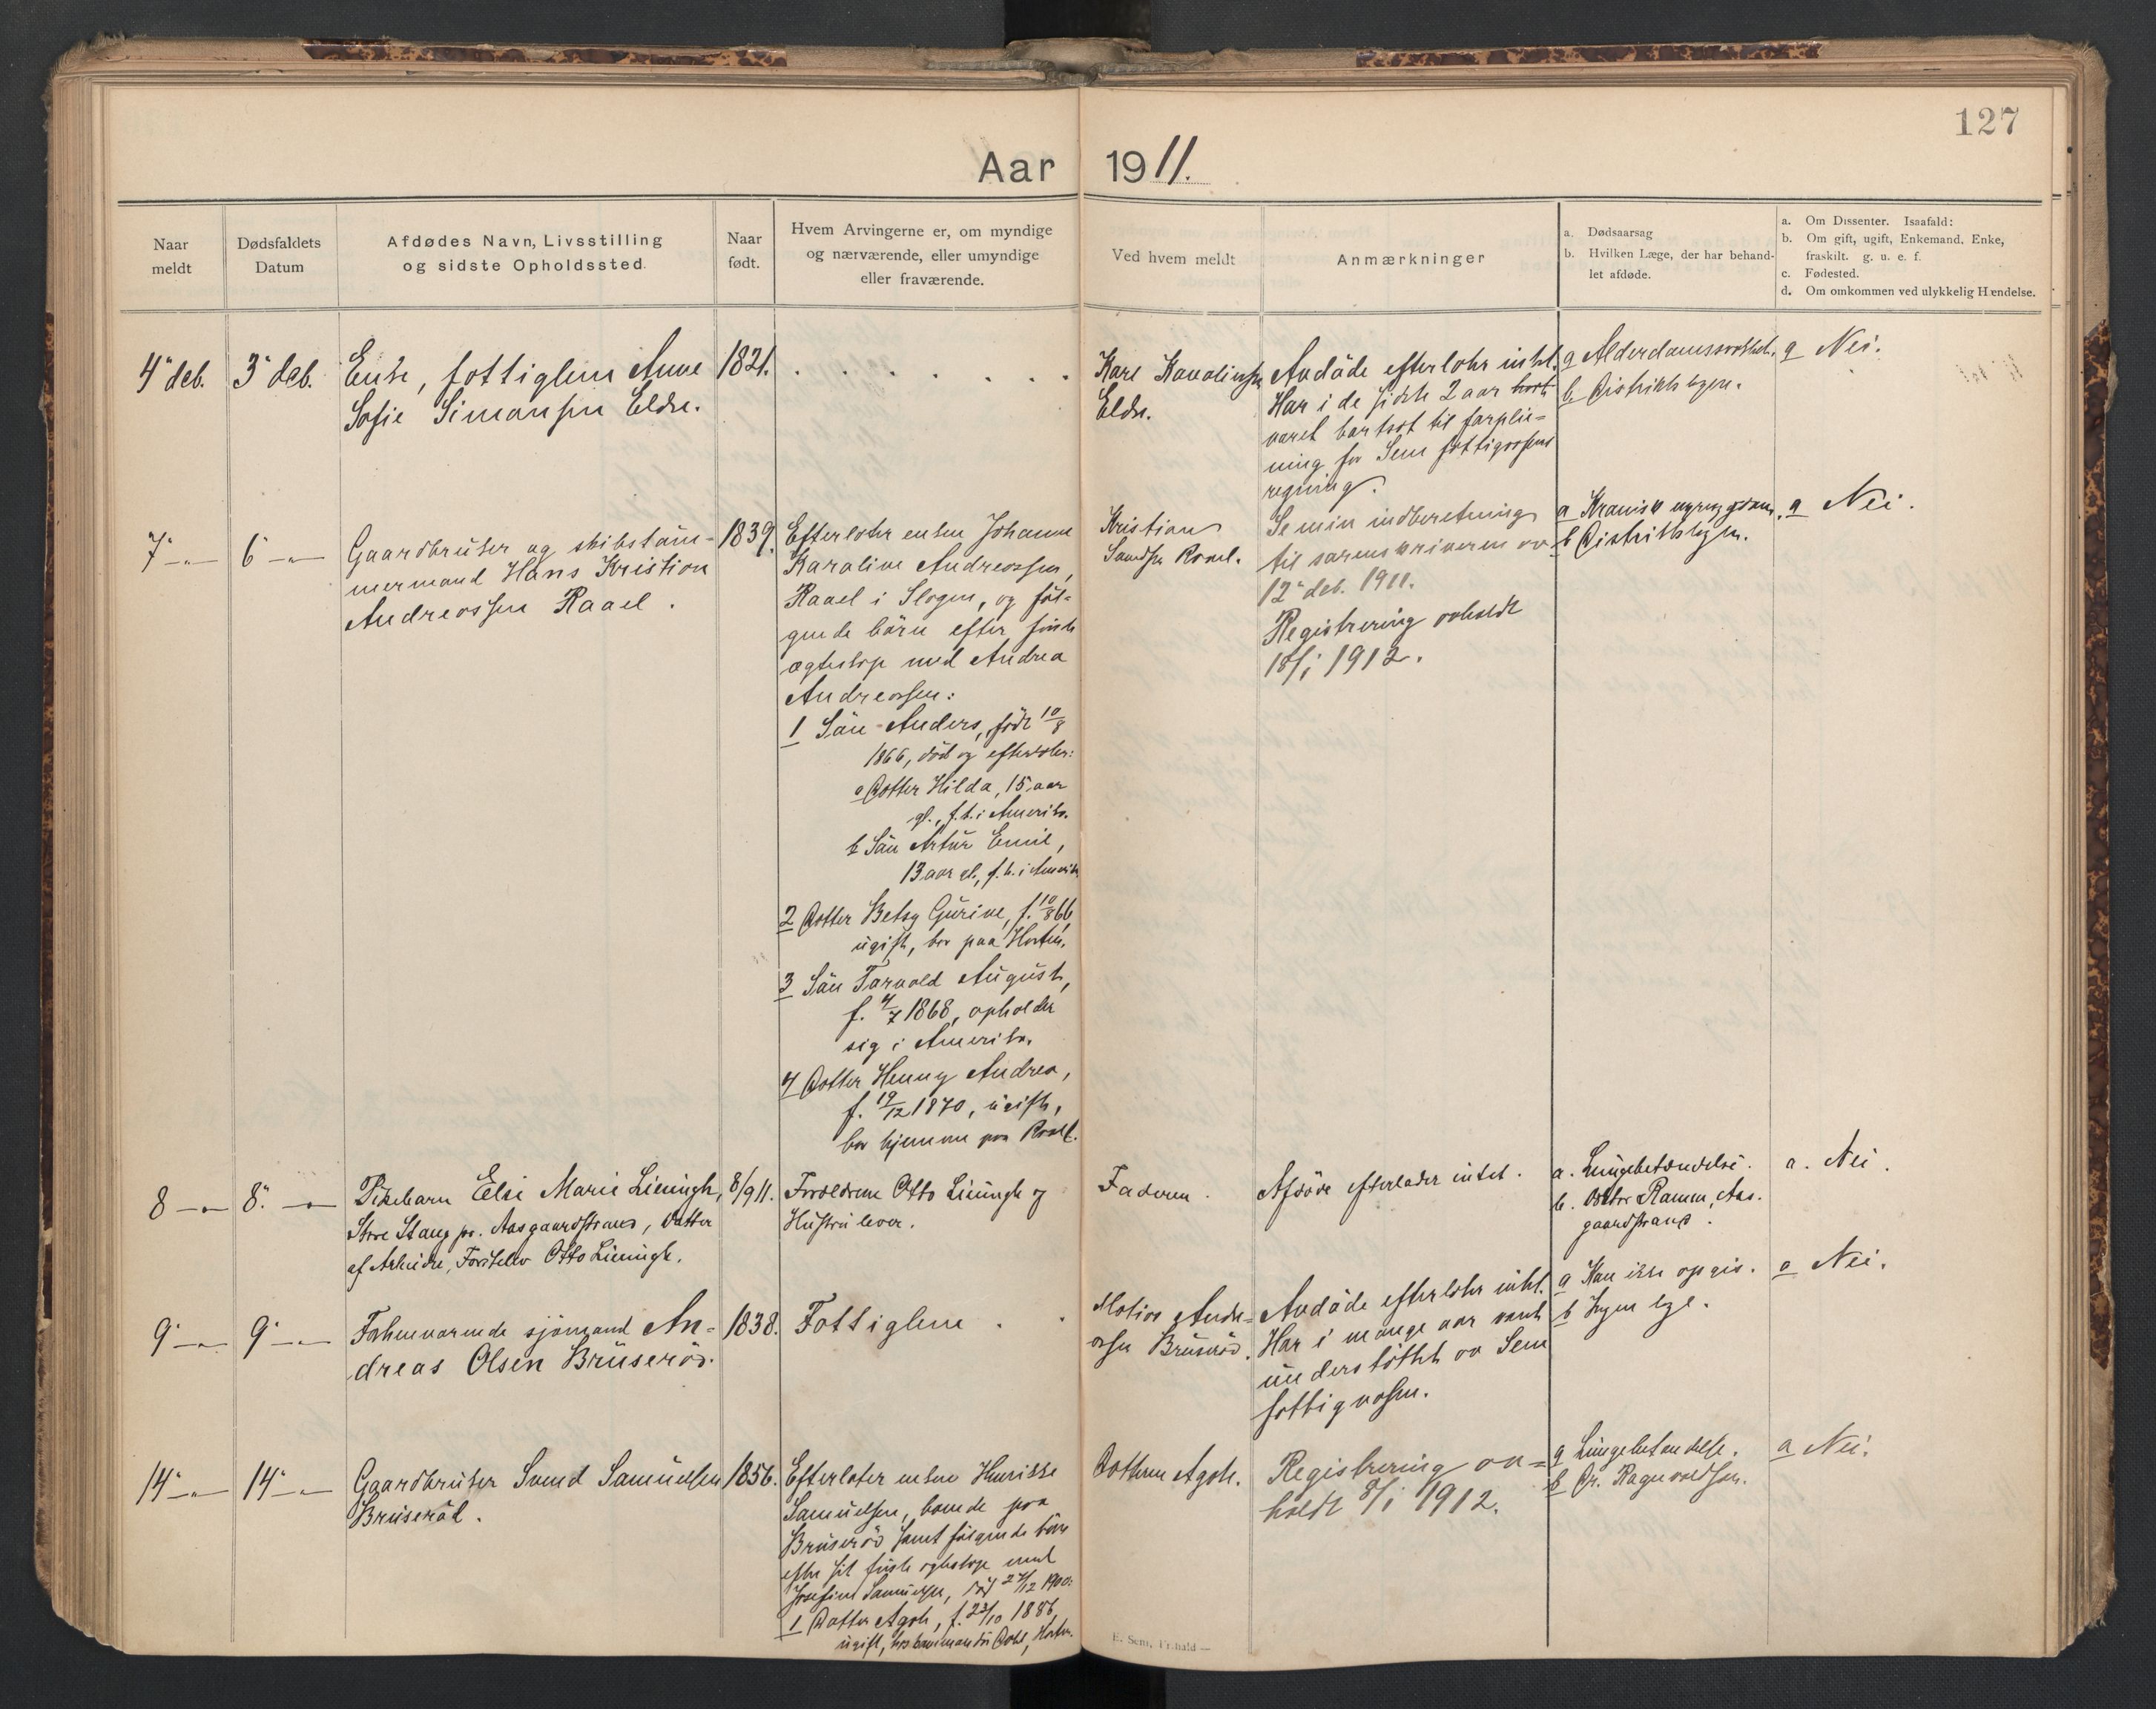 127
Aar 1911.
Naar
meldt
Dødsfaldets
Datum
Afdødes Navn, Livsstilling
og sidste Opholdssted.
Naar
født.
Hvem Arvingerne er, om myndige
og nærværende, eller umyndige
eller fraværende.
Ved hvem meldt
Anmærkninger
a. Dødsaarsag
b. Hvilken Læge, der har behand-
let afdøde.
a. Om Dissenter. Isaafald:
b. Om gift, ugift, Enkemand, Enke,
fraskilt. g. u. e. f.
c. Fødested.
d. Om omkommen ved ulykkelig Hændelse.
4' deb. 3' deb.
Enke, fattiglem Anne
Sofie Simonsen Eldre.
1821.
Karl
Avdøde efterlater intet.
Har i de sidste 2 aar
været bortsat til forplei-
ning for Sem fattigvæsens
regning.
a Alderdomssvakhet.
b Distriktslægen.
a Nei.
7' 6'
Gaardbruker og skibstøm-
mermand Hans Kristian
Andreassen Raael.
1839.
Efterlater enken Johanne
Karoline Andreassen,
Raael i Slagen, og føl-
gende børn efter første
egteskap med Andrea
Andreassen:
1 Søn Anders, født 10/8
1866, død og efterlater:
a Datter Hilda, 15 aar
gl., f.t. i Amerika.
b Søn Artur Emil,
13 aar gl., f.t. i Amerika
2 Datter Betsy Gurine, f. 10/8 66
ugift, bor paa Horten.
3 Søn Torvald August,
f. 4/7 1868, opholder
sig i Amerika.
4 Datter Henny Andrea,
f. 19/12 1870, ugift,
bor hjemme paa Raael.
Kristian
Raael.
Se min indberetning
til sorenskriveren av
12' deb. 1911.
Registrering avholdt
18/1 1912.
a Kronisk
b Distriktslægen.
a Nei.
8 8'
Pikebarn Elsi Marie
Store Stang pr. Aasgaardstrand, Datter
af Arbeider, Otto
8/9 11.
Forældrene Otto og
Hustru lever.
Faderen.
Afdøde efterlader intet.
a. Lungebetændelse.
b. Doktor Ramm, Aas-
gaardstrand.
a. Nei.
9' 9'
Forhenværende sjømand An-
dreas Olsen Brüserød.
1838.
Fattiglem.
Andre-
assen Brüserød.
Avdøde efterlater intet.
Har i mange aar været
understøttet av Sem
fattigvæsen.
a Kan ikke opgis.
b Ingen læge.
a Nei.
14' 14'
Gaardbruker Svend Samuelsen
Brüserød.
1856.
Efterlater enken
Samuelsen, boende paa
Brüserød samt følgende børn
efter sit første egteskap med
Josefine Samuelsen, død 27/12 1900:
1 Datter Agot, f. 23/10 1886,
ugift, hos Horten.
Datteren Agot.
Registrering av-
holdt 8/1 1912.
a Lungebetændelse.
b Dr. Ragnvaldsen.
a Nei.
E. Sem, Fr.hald —